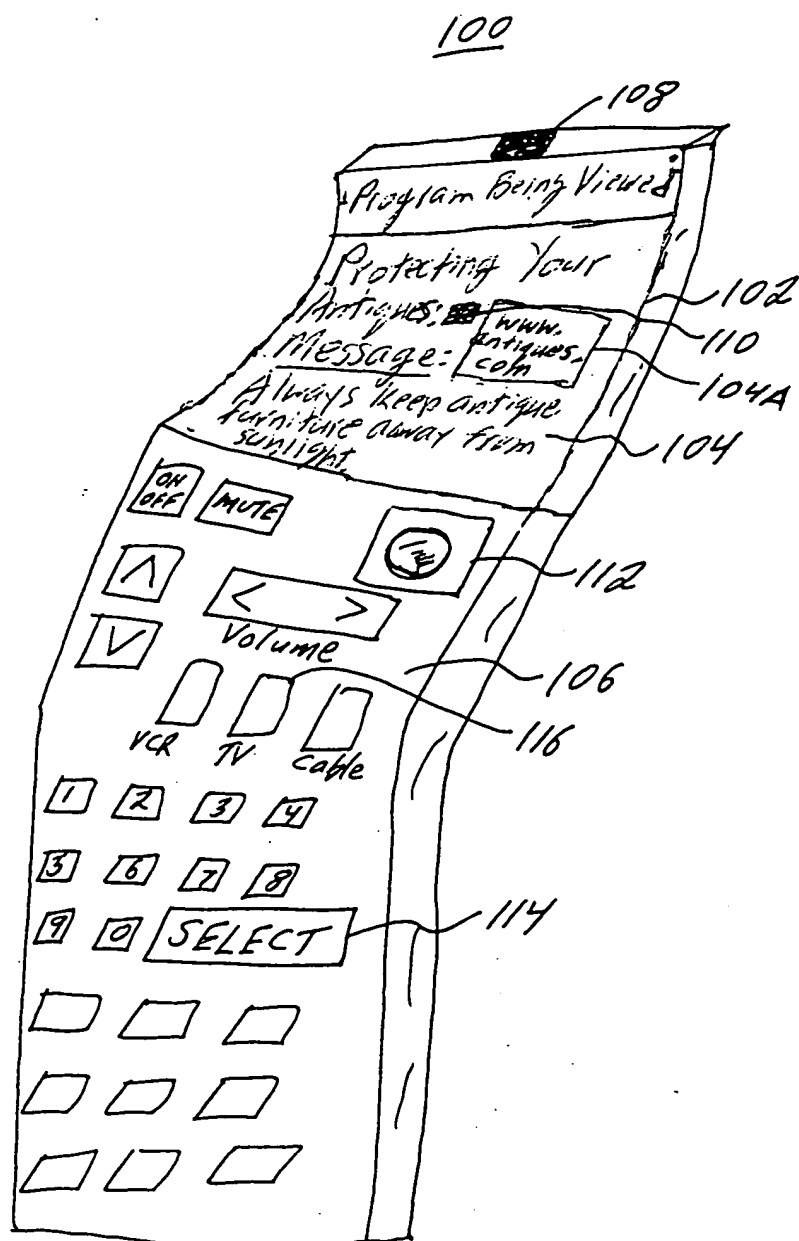 100
108
Program Being Viewed
Protecting Your
Antiques:
www.
antiques.
com
Message:
102
110
104A
Always keep antique
furniture away from
sunlight
104
ON
OFF
MUTE
112
< >
Volume
106
VCR
TV
Cable
116
1 2 3 4
5 6 7 8
9 0 SELECT
114